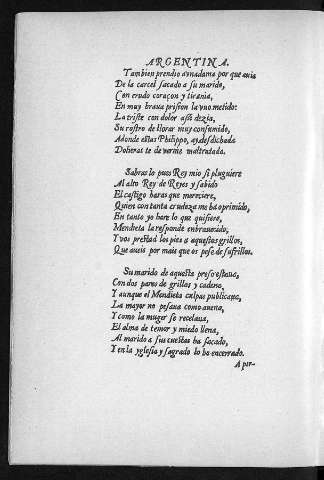 ARGENTINA.
Tambien prendio a vnadama por que auia
De la carcel sacado a su marido,
Con crudo coraçon y tirania,
En muy braua prision la vuo metido:
La triste con dolor assi dezia,
Su rostro de llorar muy consumido,
Adonde estas Philippo, ay desdichada
Dolieras te de verme maltratada.

Sabras lo pues Rey mio si pluguiere
Al alto Rey de Reyes y sabido
El castigo haras que mereziere,
Quien con tanta crudeza me ha oprimido,
En tanto yo hare lo que quisiere,
Mendieta la responde embrauecido,
Y vos prestad los pies a aquestos grillos,
Que aueis por mais que os pese de sufrillos.

Su marido de aquesta preso estaua,
Con dos pares de grillos y cadena,
Y aunque el Mendieta culpas publicaua,
La mayor no pesaua como auena,
Y como la muger se recelaua,
El alma de temor y miedo llena,
Al marido a sus cuestas ha sacado,
Y en la yglesia y sagrado lo ha encerrado.
A pri-